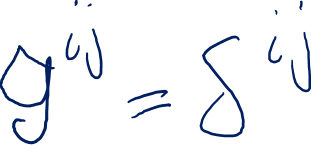 g^{ij} = δ^{ij}